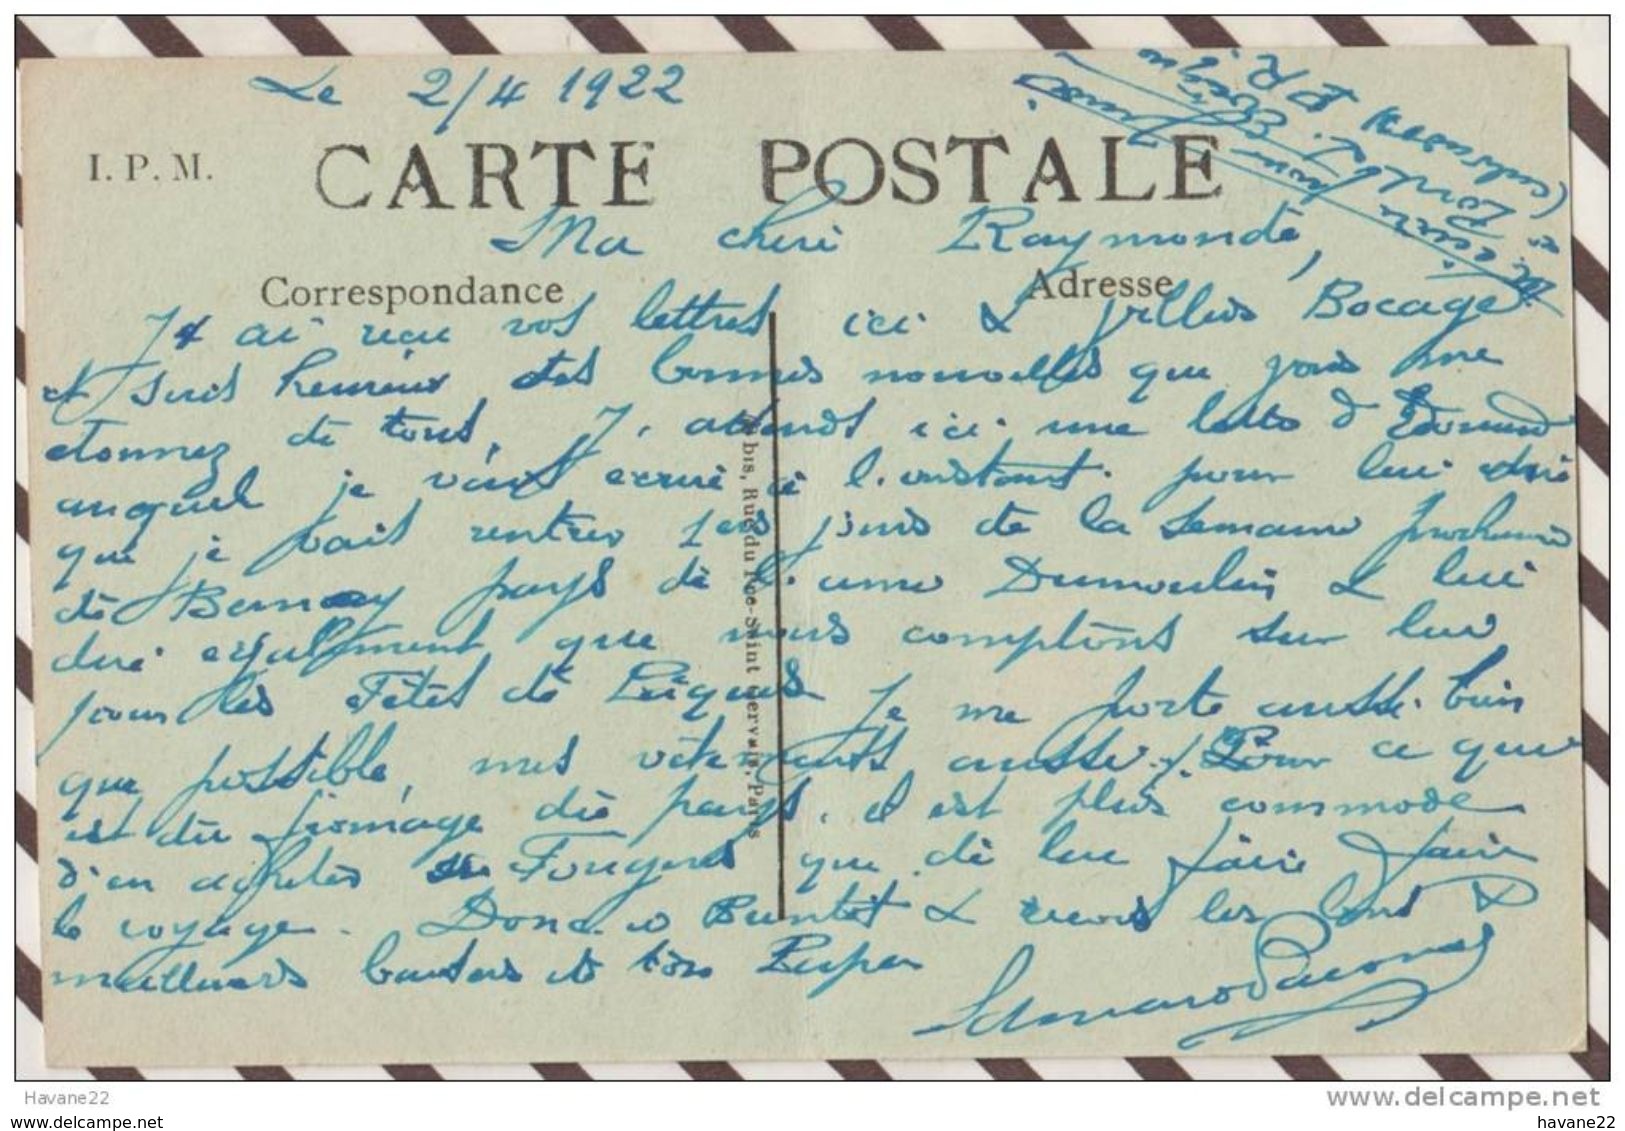 Le 2/4 1922
I. P. M.
CARTE POSTALE
Ma cheri Raymonde,
Correspondance
Adresse
J ai recu vos lettres ici & Villers Bocage
et suis heureux des bonnes nouvelles que vous me
donnez de tous. J. attends ici une lettre d Edmond
auquel je vais ecrire à l'instant pour lui dire
que je vais rentrer 1ers jours de la semaine prochaine
de Bernay pays de l'ami Dumoulin & lui
dire également que nous comptons sur lui
pour les Fêtes de Pâques Je me porte aussi bien
que possible, mes vêtements aussi. Pour ce qui
est du fromage du pays, il est plus commode
d'en acheter à Fougeres que de lui faire faire
le voyage. Donc a Bientot & recois les bons &
meilleurs baisers de ton Papa
bis, Rue du Pce-Saint Gervais, Paris
Havane22
delcampe.net
havane22